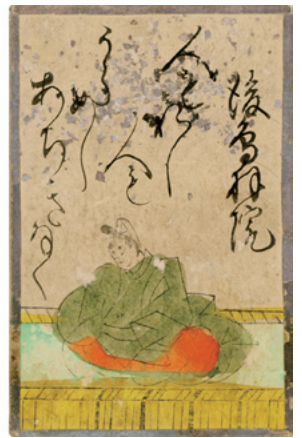 後鳥羽院
人もをし
人も
うらめし
あちきなく